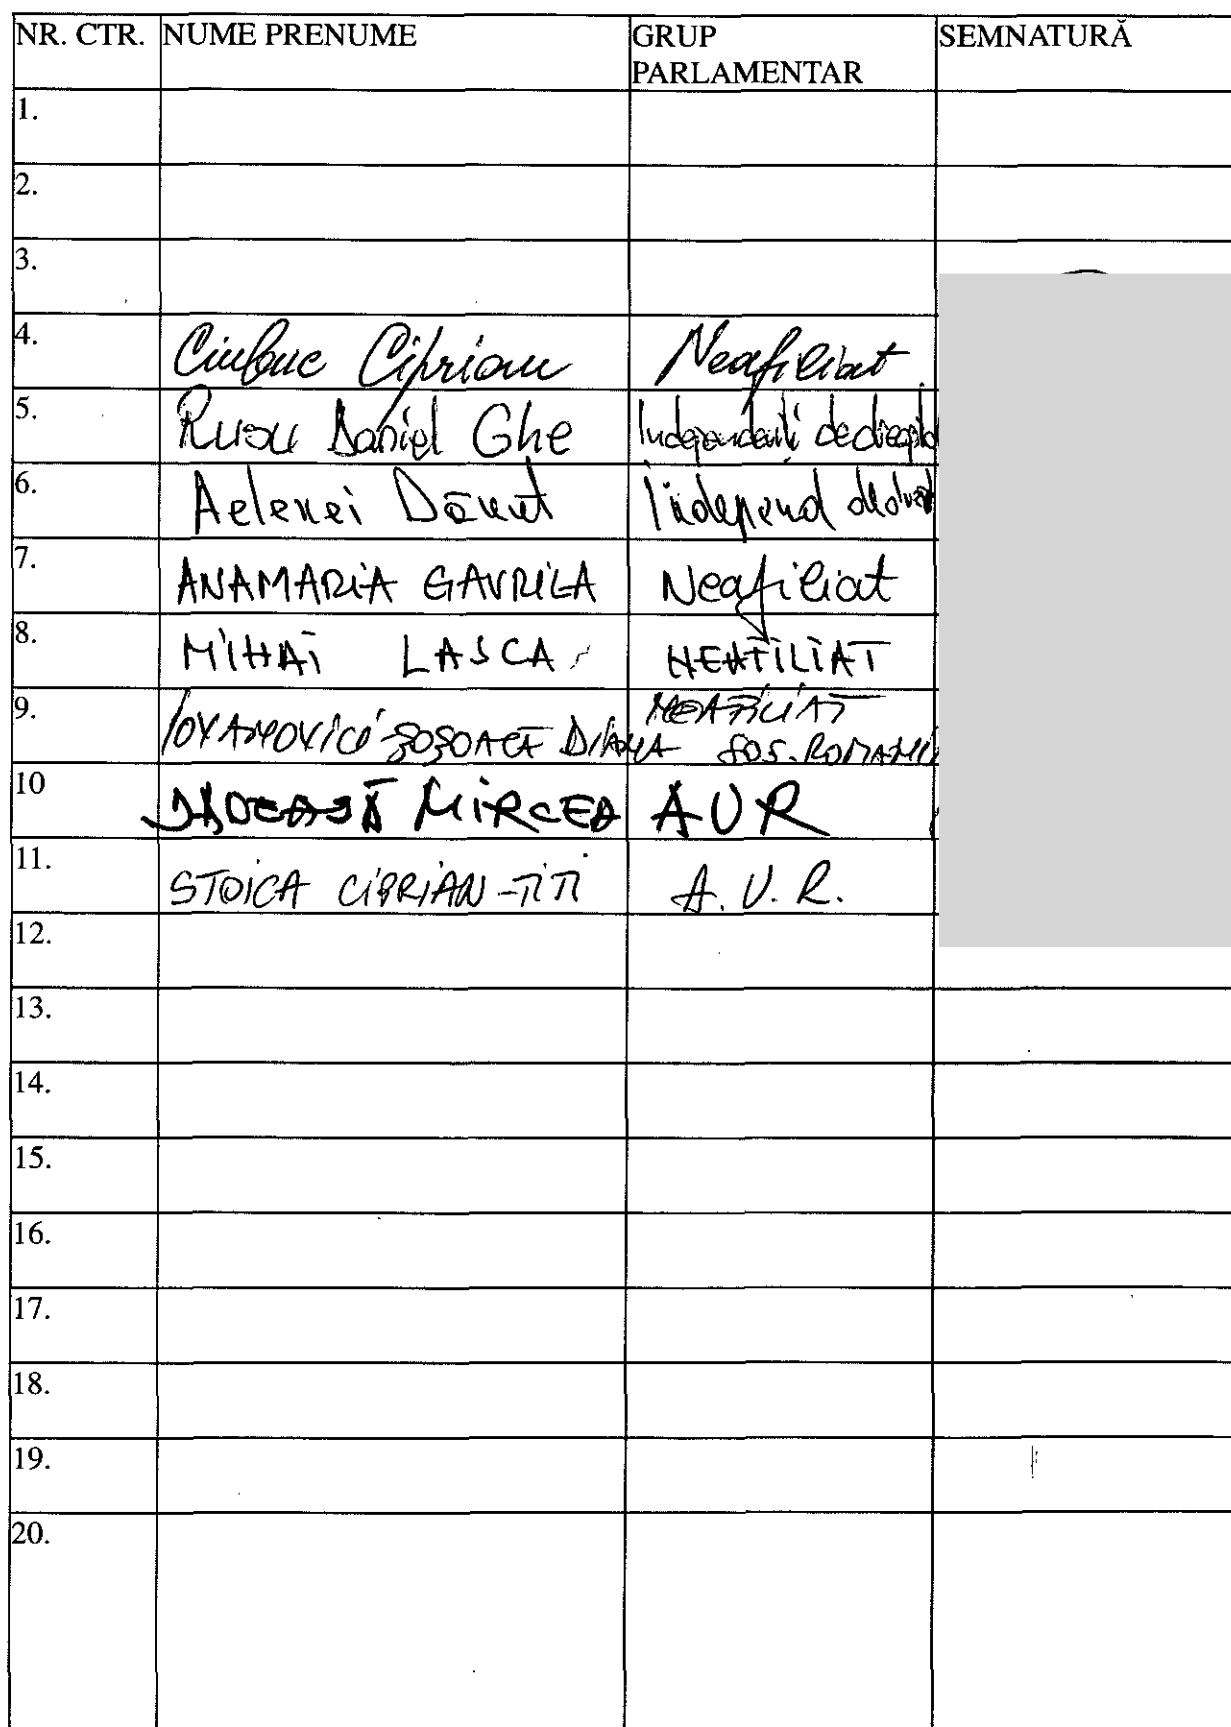 NR. CTR. NUME PRENUME GRUP PARLAMENTAR SEMNATURĂ
1.
2.
3.
4. Ciubuc Ciprian Neafiliat
5. Rusu Daniel Ghe Independenti de dreapta
6. Aelenei Dănut Independ
7. ANAMARIA GAVRILA Neafiliat
8. MIHAI LASCA NEAFILIAT
9. IOVANOVICI-ȘOȘOACĂ DIANA NEAFILIAT SOS. ROMANIA
10 MIRCEA AUR
11. STOICA CIPRIAN-TITI A.U.R.
12.
13.
14.
15.
16.
17.
18.
19.
20.